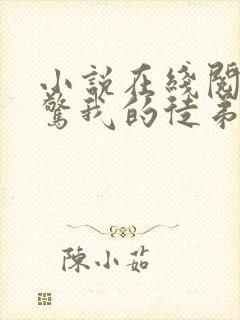 小説在綫閱
驚我的徒弟
陳小茹